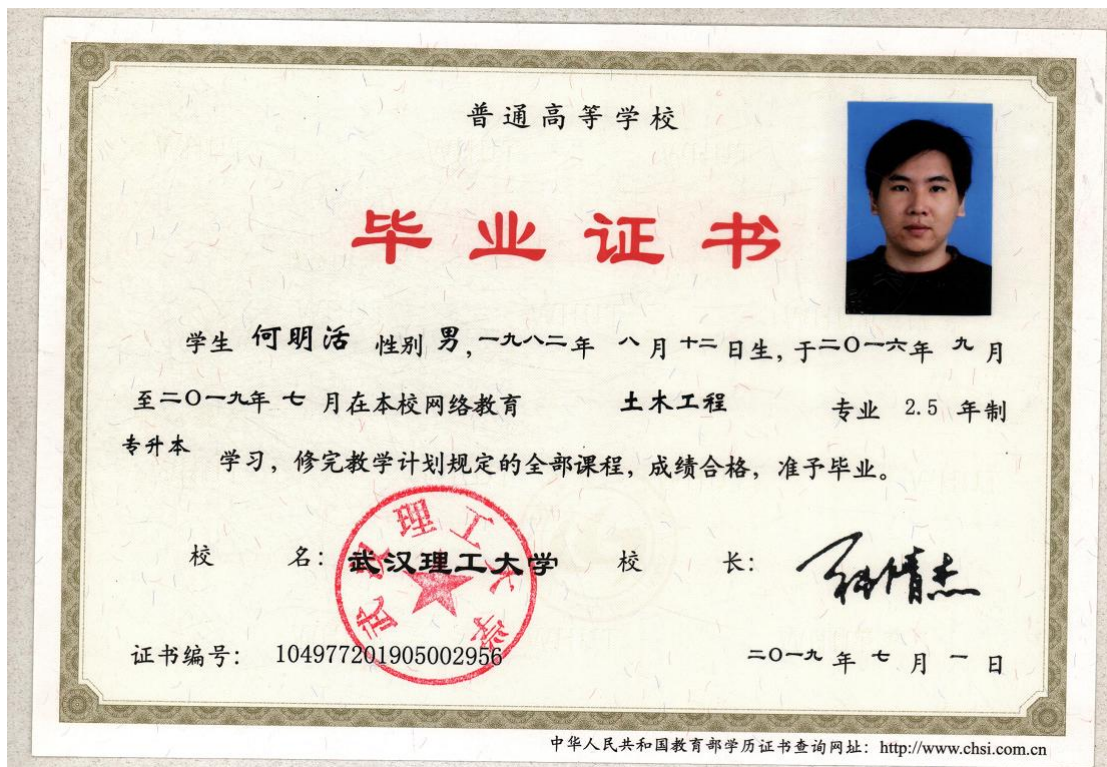 普通高等学校
毕业证书
学生 何明活 性别 男,一九八二年 八月十二日生,于二〇一六年 九月
至二〇一九年 七 月在本校网络教育 土木工程 专业 2.5 年制
专升本 学习，修完教学计划规定的全部课程，成绩合格，准予毕业。
校 名：武汉理工大学 校 长：
武汉理工大学
证书编号： 104977201905002956 二〇一九 年 七 月 一 日
中华人民共和国教育部学历证书查询网址：http://www.chsi.com.cn